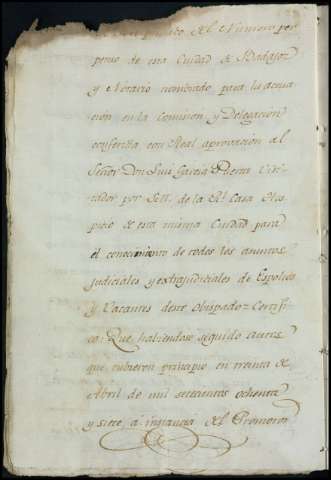 publico del Numero per
petuo de esta Ciudad de Badajoz
y Notario nombrado para la actua
cion en la Comision, y Delegacion
conferida con Real aprovacion al
Señor Don Luis Garcia Puerta
por S.M. de la Rl. Casa Hos
picio de esta misma Ciudad para
el conocimiento de todos los asuntos
judiciales y extrajudiciales de Espolios
y Vacantes deste Obispado = Certifi
co: Que habiendose seguido autos
que tubieron principio en treinta de
Abril de mil setecientos ochenta
y siete, á instancia del Promotor